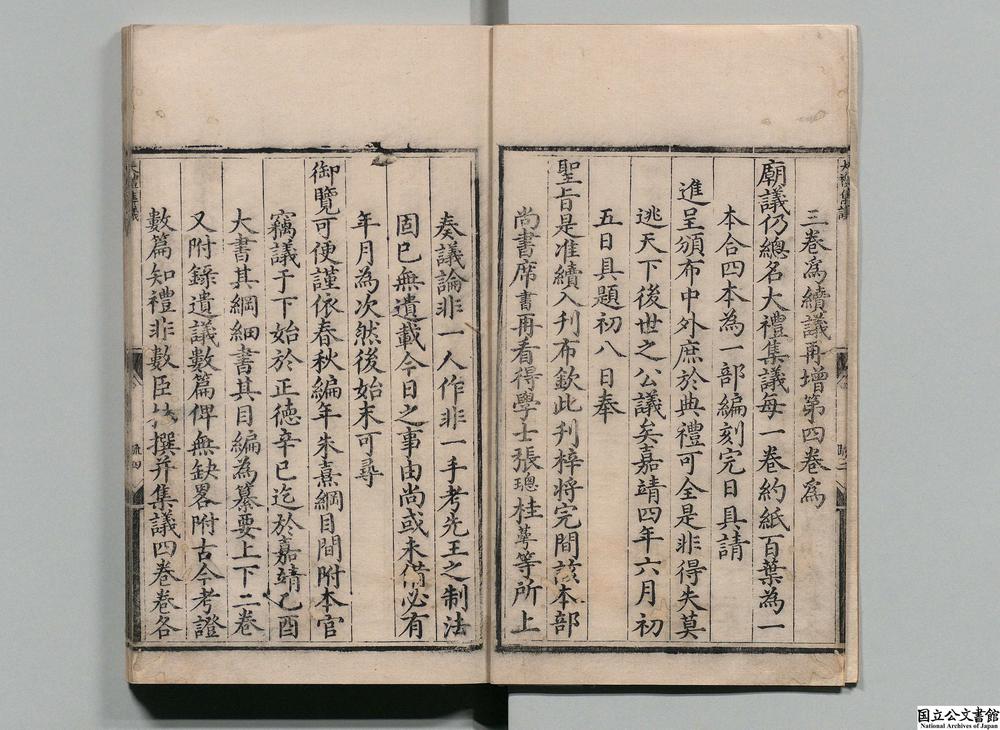 三卷爲續議再增第四卷爲
廟議仍總名大禮集議每一卷約紙百葉為一
本合四本為一部編刻完日具請
進呈頒布中外庶於典禮可全是非得失莫
逃天下後世之公議矣嘉靖四年六月初
五日具題初八日奉
聖旨是准續入刊布欽此刊梓将完間該本部
尚書席書再看得學士張璁桂萼等所上
奏議論非一人作非一手考先王之制法
固已無遺載今日之事由尚或未備必有
年月為次然後始末可尋
御覽可便謹依春秋編年朱熹綱目間附本官
竊議于下始於正德辛巳迄於嘉靖乙酉
大書其綱細書其目編為纂要上下二卷
又附錄遺議數篇俾無缺畧附古今考證
數篇知禮非數臣杜撰并集議四卷卷各
大禮集議
疏四
国立公文書館
National Archives of Japan